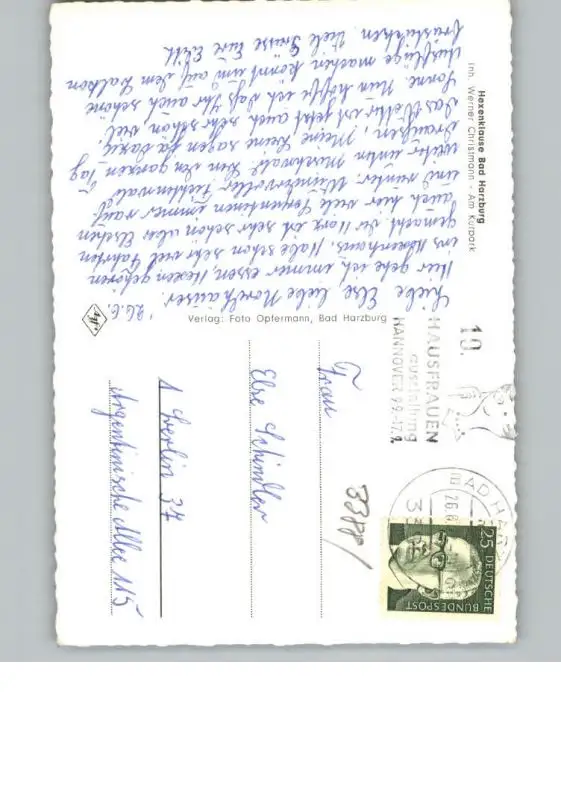 Hexenklause Bad Harzburg
Inh. Werner Christmann - Am Kurpark
26.6.
Liebe Else, liebe Nordhäuser.
Hier gehe ich immer essen, Hexen gehören
ins Hexenhaus. Habe schon sehr viel Fahrten
gemacht, der Harz ist sehr schön aber Elschen
auch hier viele Serpentinen immer rauf
und runter. Wundervoller Fichtenwald
weiter unten Mischwald. Den ganzen Tag
draußen. Meine Beine sagen ja dazu.
Das Wetter ist jetzt auch sehr schön viel
Sonne. Nun hoffe ich daß Ihr auch schöne
Ausflüge machen könnt und auf dem Balkon
frühstücken. Viele Grüsse Eure
Verlag: Foto Opfermann, Bad Harzburg
Agfa
19.
HAUSFRAUEN
ausstellung
HANNOVER 9.9.-17.9.
BAD HARZ
26.6.
25 DEUTSCHE
BUNDESPOST
Frau
Else Schindler
1 Berlin 37
Argentinische Allee 115